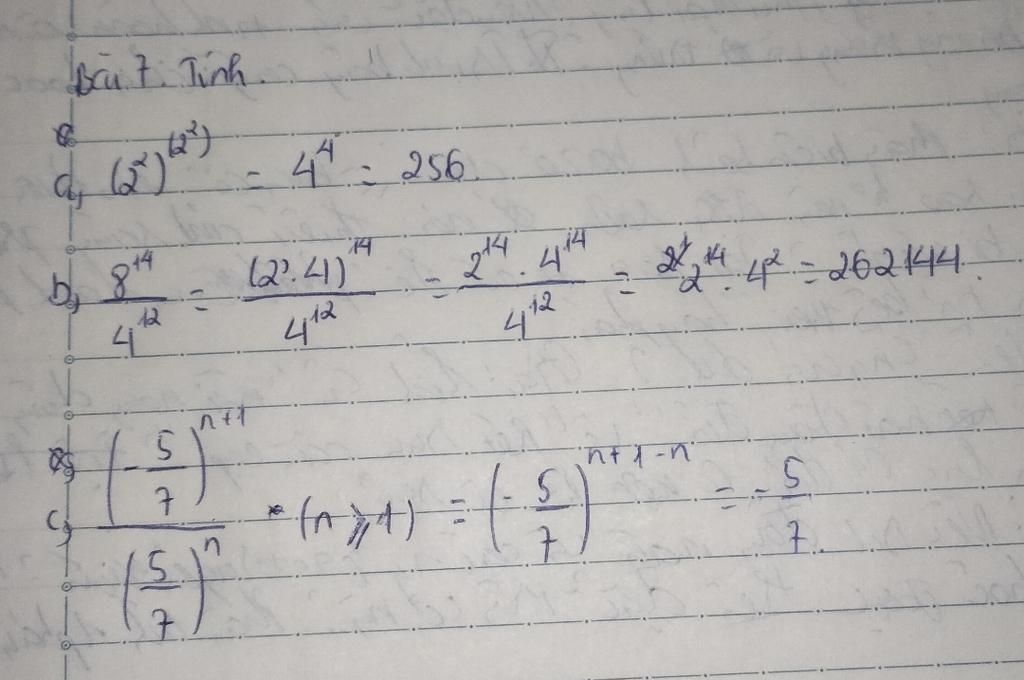 Bài 7. Tính.
a, (2²)^(2²) = 4⁴ = 256.
b, 8¹⁴/4¹² = (2.4)¹⁴/4¹² = 2¹⁴.4¹⁴/4¹² = 2¹⁴.4² = 262144.
c, (-5/7)^(n+1)/(5/7)^n (n ⩾ 1) = (-5/7)^(n+1-n) = -5/7.